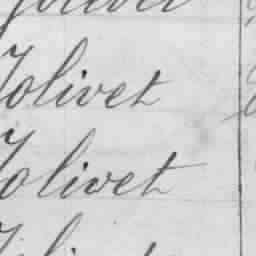 Jolivet
Jolivet